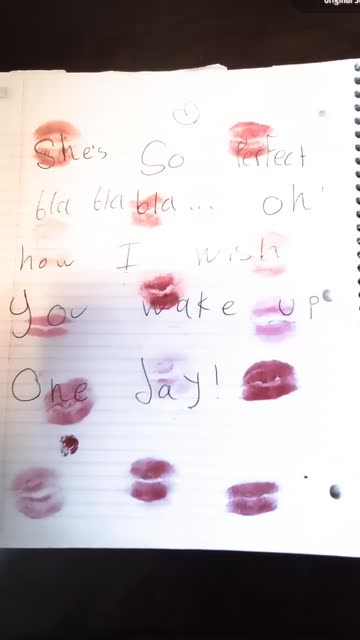 original s
She's So Perfect
bla bla bla... oh'
how I wish
You wake up
One day!